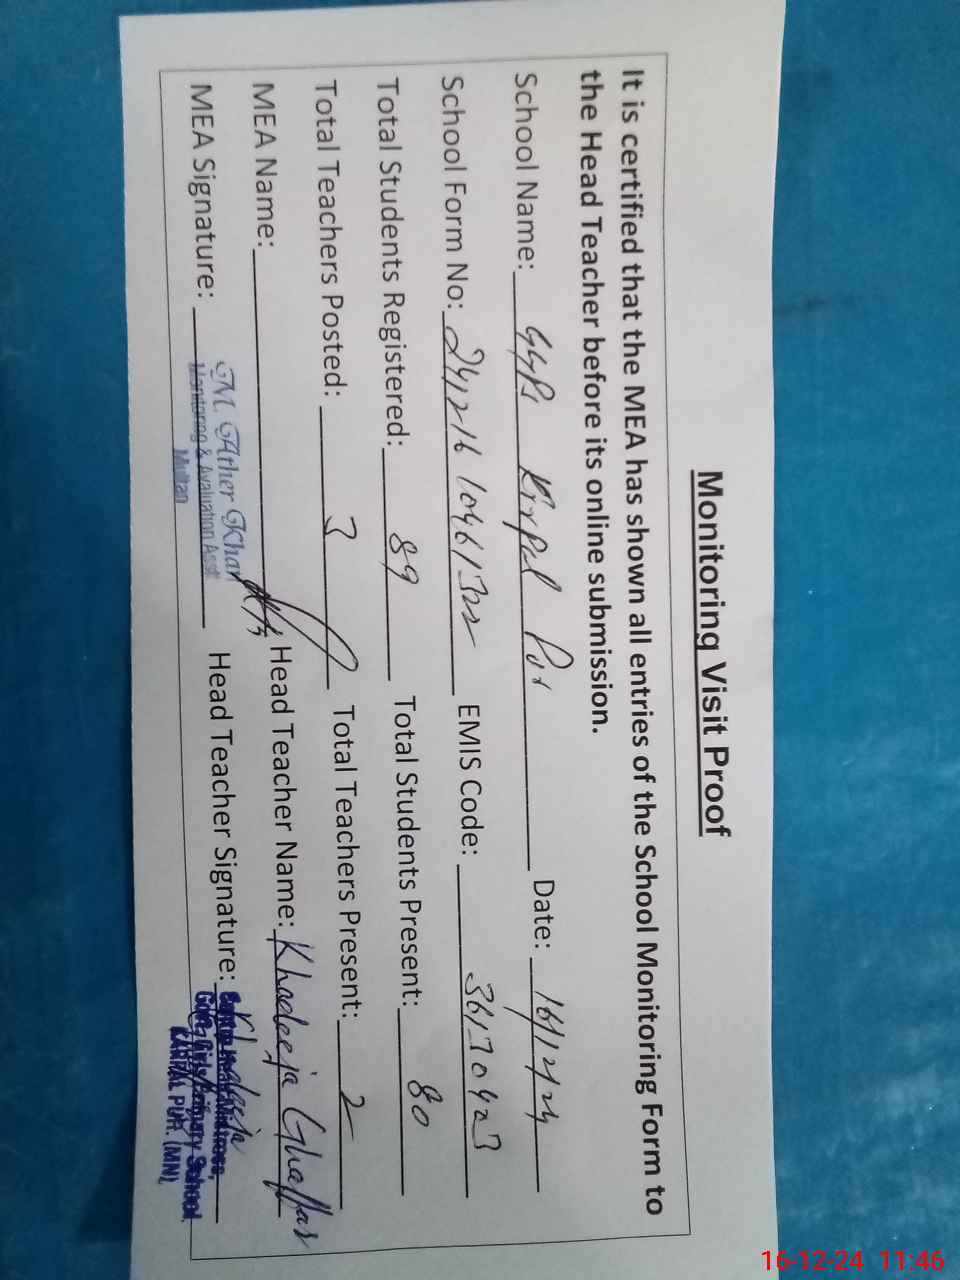 Monitoring Visit Proof
It is certified that the MEA has shown all entries of the School Monitoring Form to
the Head Teacher before its online submission.
School Name: GGPS Kirpal Pur Date: 16/12/24
School Form No: EMIS Code: 36170423
Total Students Registered: 89 Total Students Present: 80
Total Teachers Posted: 3 Total Teachers Present: 2
MEA Name: Head Teacher Name: Khadeeja Ghaffar
MEA Signature: M. Ather Khan Head Teacher Signature: Khadeeja
Monitoring & Avaluation Asst
Multan
Govt. Girls Primary School,
KARPAL PUR. (MN)
16-12-24 11:46